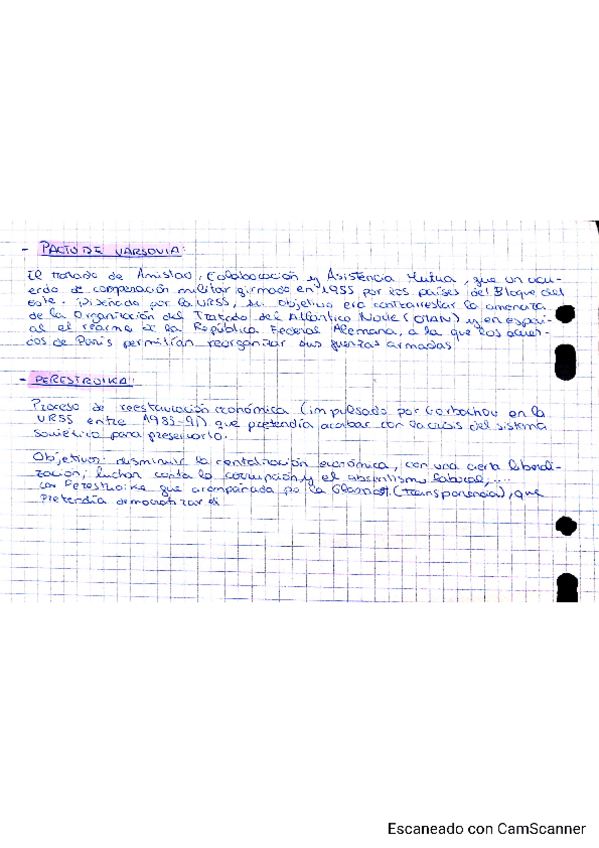 - PACTO DE VARSOVIA:
El Tratado de Amistad, Colaboración y Asistencia Mutua, que un acu-
erdo de cooperación militar firmado en 1955 por los países del Bloque del
este. Diseñado por la URSS, su objetivo era contrarrestar la amenaza
de la Organización del Tratado del Atlántico Norte (OTAN) y en especi-
al el rearme de la República Federal Alemana, a la que los acuer-
dos de París permitían reorganizar sus fuerzas armadas
- PERESTROIKA:
Proceso de reestauración económica (impulsado por Gorbachov en la
URSS entre 1985-91) que pretendía acabar con la crisis del sistema
Soviético para preservarlo.
Objetivos: disminuir la centralización económica, con una cierta liberali-
zación, luchar contra la corrupción y el absentismo laboral,....
La Perestroika que acompañada por la Glasnost (transparencia), que
pretendía democratizar el
Escaneado con CamScanner